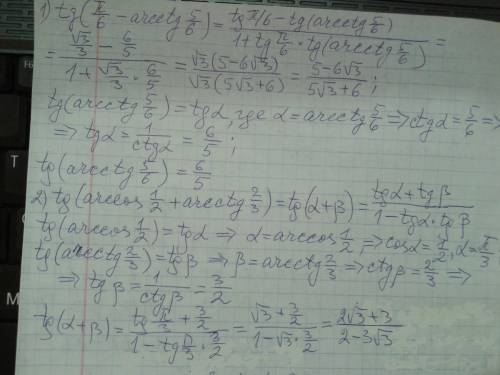 1) tg(π/6 - arcctg 5/6) = (tg π/6 - tg(arcctg 5/6)) / (1 + tg π/6 · tg(arcctg 5/6)) =
= (√3/3 - 6/5) / (1 + √3/3 · 6/5) = √3(5-6√3) / √3(5√3+6) = (5-6√3) / (5√3+6) ;
tg(arcctg 5/6) = tgα, где α = arcctg 5/6 ⇒ ctgα = 5/6 ⇒
⇒ tgα = 1/ctgα = 6/5 ;
tg(arcctg 5/6) = 6/5
2) tg(arccos 1/2 + arcctg 2/3) = tg(α+β) = (tgα + tgβ) / (1 - tgα · tgβ)
tg(arccos 1/2) = tgα ⇒ α = arccos 1/2, ⇒ cosα = 1/2, α = π/3
tg(arcctg 2/3) = tgβ ⇒ β = arcctg 2/3 ⇒ ctgβ = 2/3 ⇒
⇒ tgβ = 1/ctgβ = 3/2
tg(α+β) = (tg π/3 + 3/2) / (1 - tg π/3 · 3/2) = (√3 + 3/2) / (1 - √3 · 3/2) = (2√3+3) / (2-3√3)